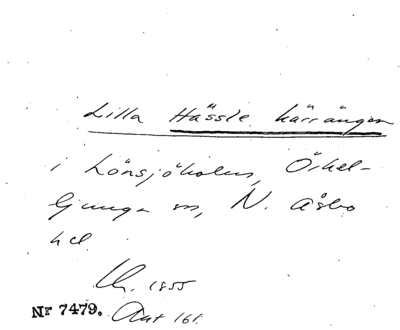 Lilla Hässle kärrängen
i Lönsjöholm, Örkel-
ljunga sn, N. Åsbo
hd.
Lh. 1855
Nr 7479. Akt 161.